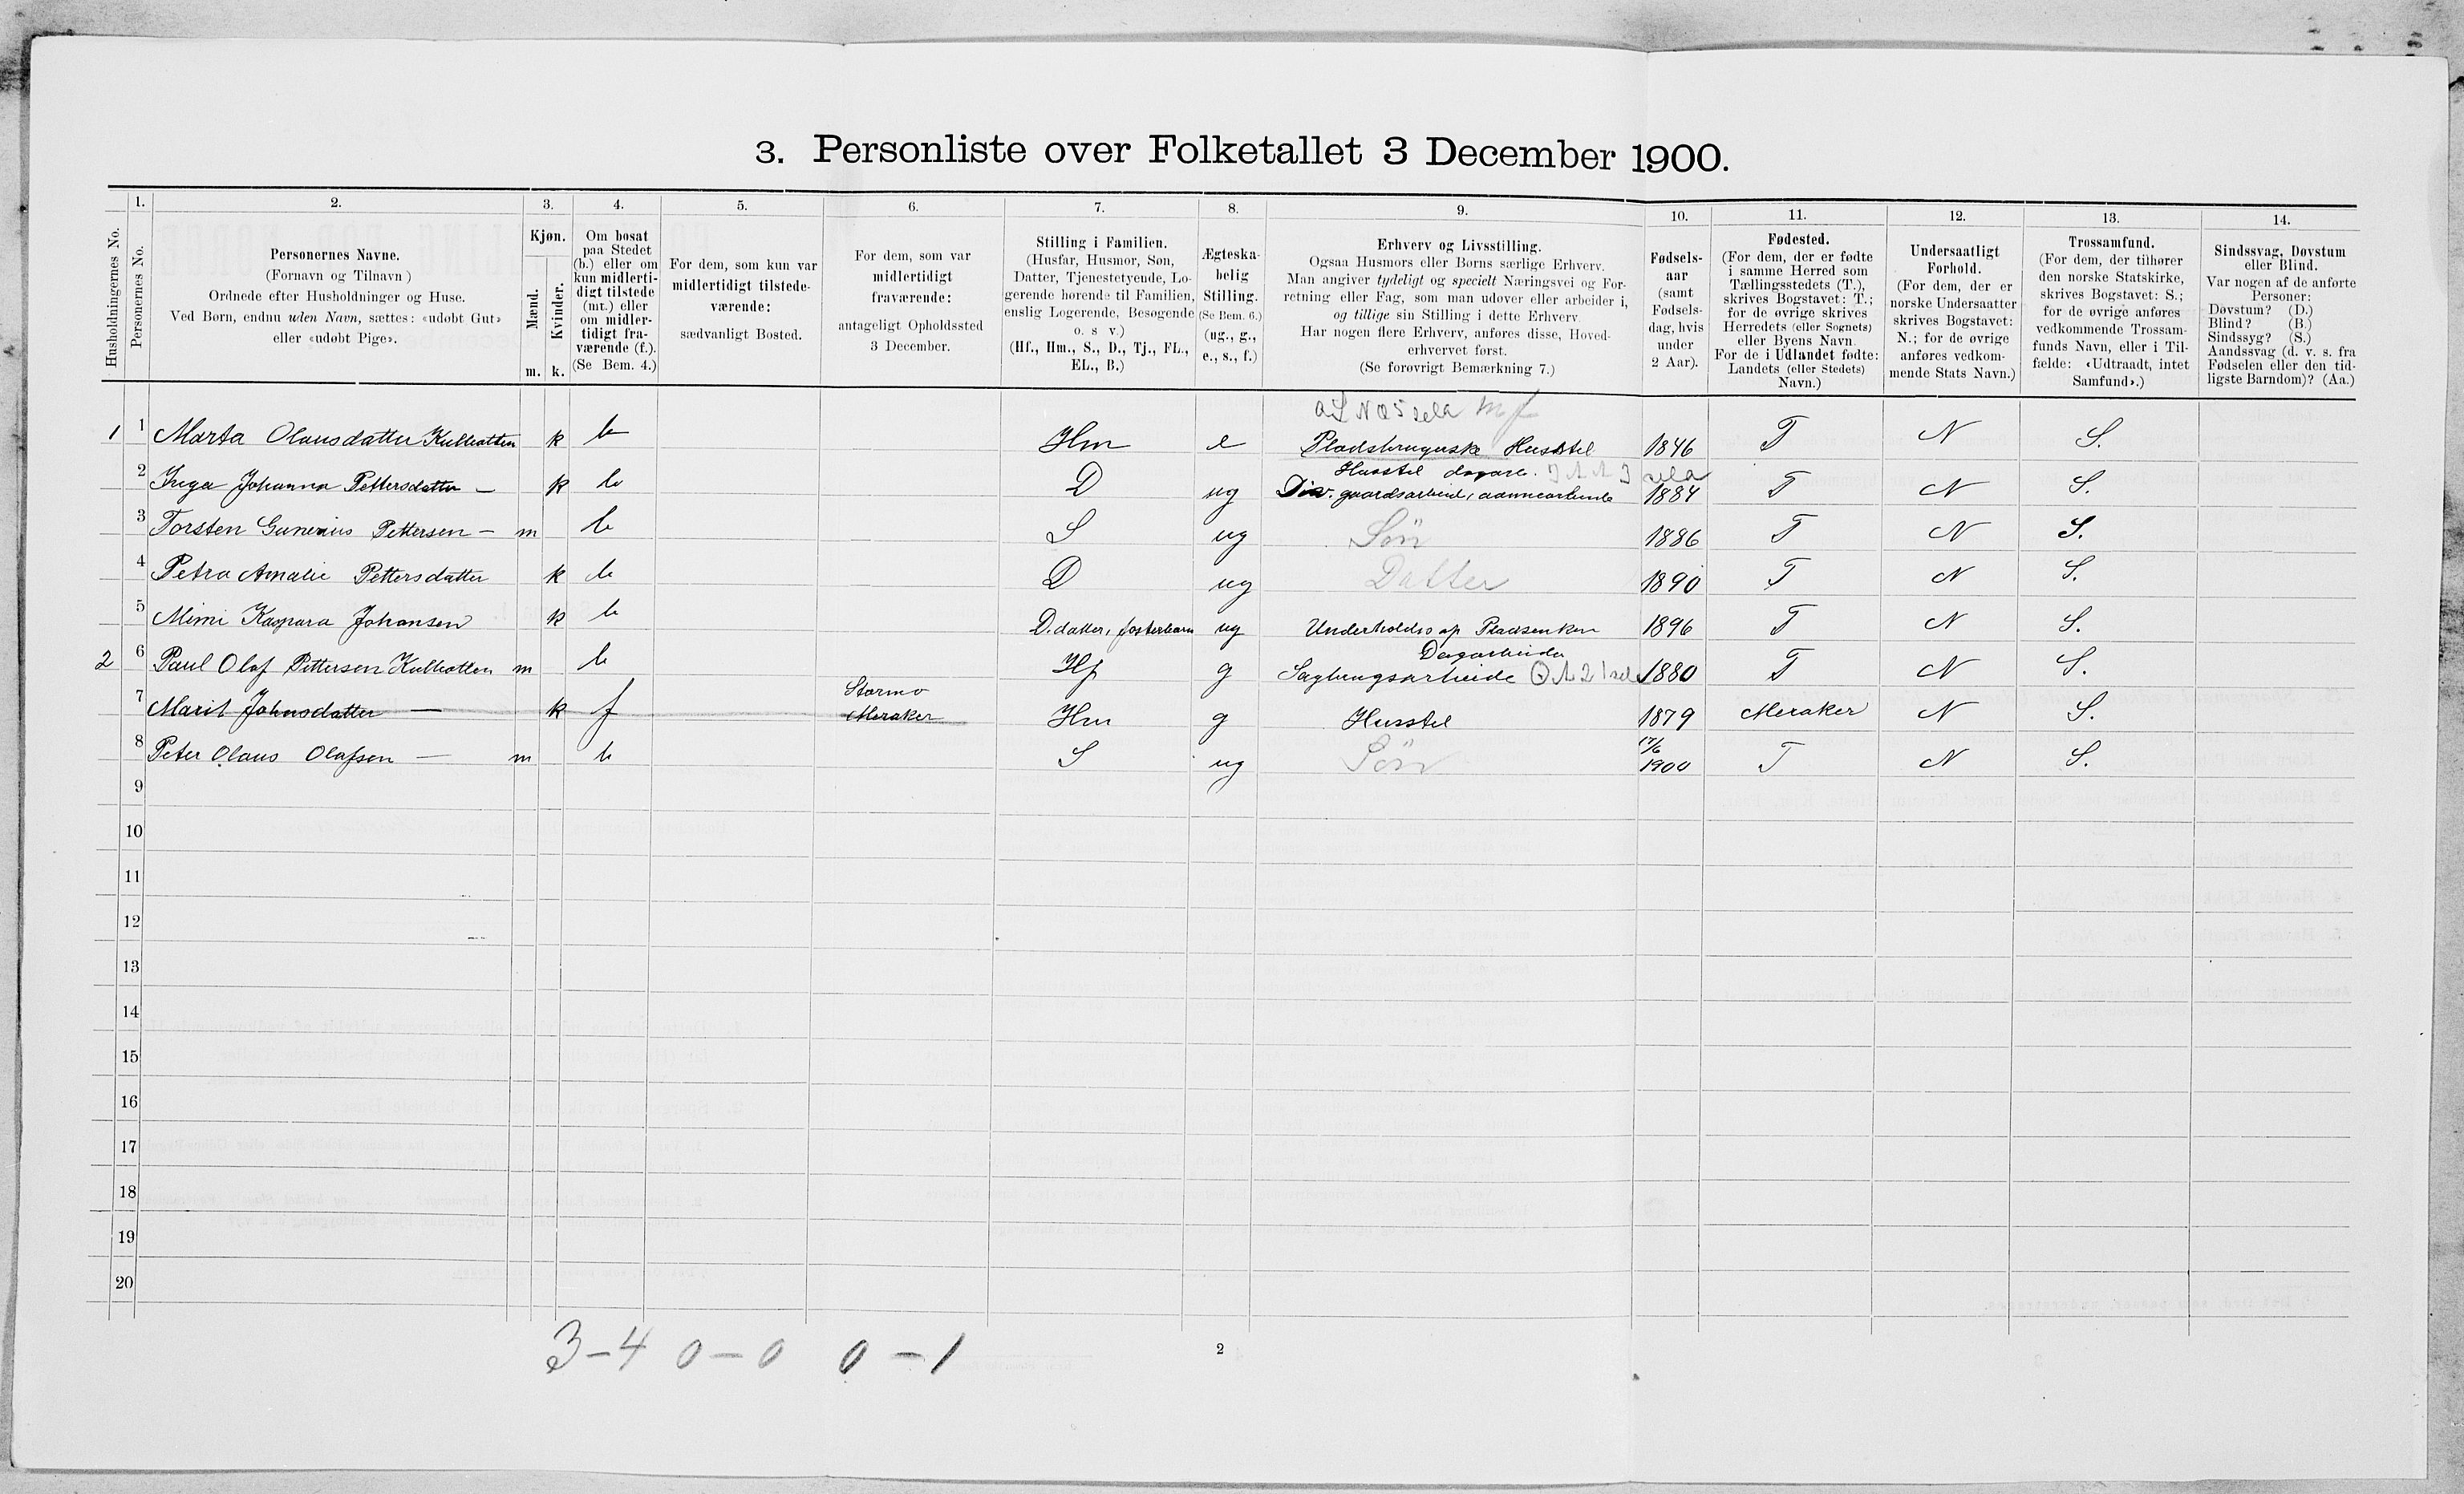 3. Personliste over Folketallet 3 December 1900.
1. 2. 3. 4. 5. 6. 7. 8. 9. 10. 11. 12. 13. 14.
Husholdningernes No.
Personernes No.
Personernes Navne.
(Fornavn og Tilnavn)
Ordnede efter Husholdninger og Huse.
Ved Børn, endnu uden Navn, sættes: «udøbt Gut»
eller «udøbt Pige».
Kjøn.
Mænd.
Kvinder.
m. k.
Om bosat
paa Stedet
(b.) eller om
kun midlerti-
digt tilstede
(mt.) eller
om midler-
tidigt fra-
værende (f.).
(Se Bem. 4.)
For dem, som kun var
midlertidigt tilstede-
værende:
sædvanligt Bosted.
For dem, som var
midlertidigt
fraværende:
antageligt Opholdssted
3 December.
Stilling i Familien.
(Husfar, Husmor, Søn,
Datter, Tjenestetyende, Lo-
gerende hørende til Familien,
enslig Logerende, Besøgende
o. s. v.)
(Hf., Hm., S., D., Tj., FL.,
EL., B.)
Ægteska-
belig
Stilling.
(Se Bem. 6.)
(ug., g.,
e., s., f.)
Erhverv og Livsstilling.
Ogsaa Husmors eller Børns særlige Erhverv.
Man angiver tydeligt og specielt Næringsvei og For-
retning eller Fag, som man udover eller arbeider i,
og tillige sin Stilling i dette Erhverv.
Har nogen flere Erhverv, anføres disse, Hoved-
erhvervet først.
(Se forøvrigt Bemærkning 7.)
Fødsels-
aar
(samt
Fødsels-
dag, hvis
under
2 Aar).
Fødested.
(For dem, der er fødte
i samme Herred som
Tællingsstedets (T.),
skrives Bogstavet: T.;
for de øvrige skrives
Herredets (eller Sognets)
eller Byens Navn.
For de i Udlandet fødte:
Landets (eller Stedets)
Navn.)
Undersaatligt
Forhold.
(For dem, der er
norske Undersaatter
skrives Bogstavet:
N.; for de øvrige
anføres vedkom-
mende Stats Navn.)
Trossamfund.
(For dem, der tilhører
den norske Statskirke,
skrives Bogstavet: S.;
for de øvrige anføres
vedkommende Trossam-
funds Navn, eller i Til-
fælde: «Udtraadt, intet
Samfund».)
Sindssvag, Døvstum
eller Blind.
Var nogen af de anførte
Personer:
Døvstum? (D.)
Blind? (B.)
Sindssyg? (S.)
Aandssvag (d. v. s. fra
Fødselen eller den tid-
ligste Barndom)? (Aa.)
1 1 Marta Olausdatter k b Hm e Pladsbrugerske Husstel 1846 T N S.
Husstel
2 Inga Johanna Pettersdatter — k b D ug Div. gaardsarbeide, 1884 T N S.
3 Torsten Gunerius Pettersen — m b S ug Søn 1886 T N S.
4 Petra Amalie Pettersdatter k b D ug Datter 1890 T N S.
5 Mimi Kaspara Johansen k b D.datter, fosterbarn ug Underholdes af Pladsenken 1896 T N S.
Dagarbeider
2 6 Paul Olaf Pettersen m b Hf g Sagbrugsarbeide 1880 T N S.
Stormo
7 Marit Johnsdatter — k f Meraker Hm g Husstel 1879 Meraker N S.
17/6
8 Peter Olaus Olafsen — m b S ug Søn 1900 T N S.
9
10
11
12
13
14
15
16
17
18
19
20
3-4 0-0 0-1
2